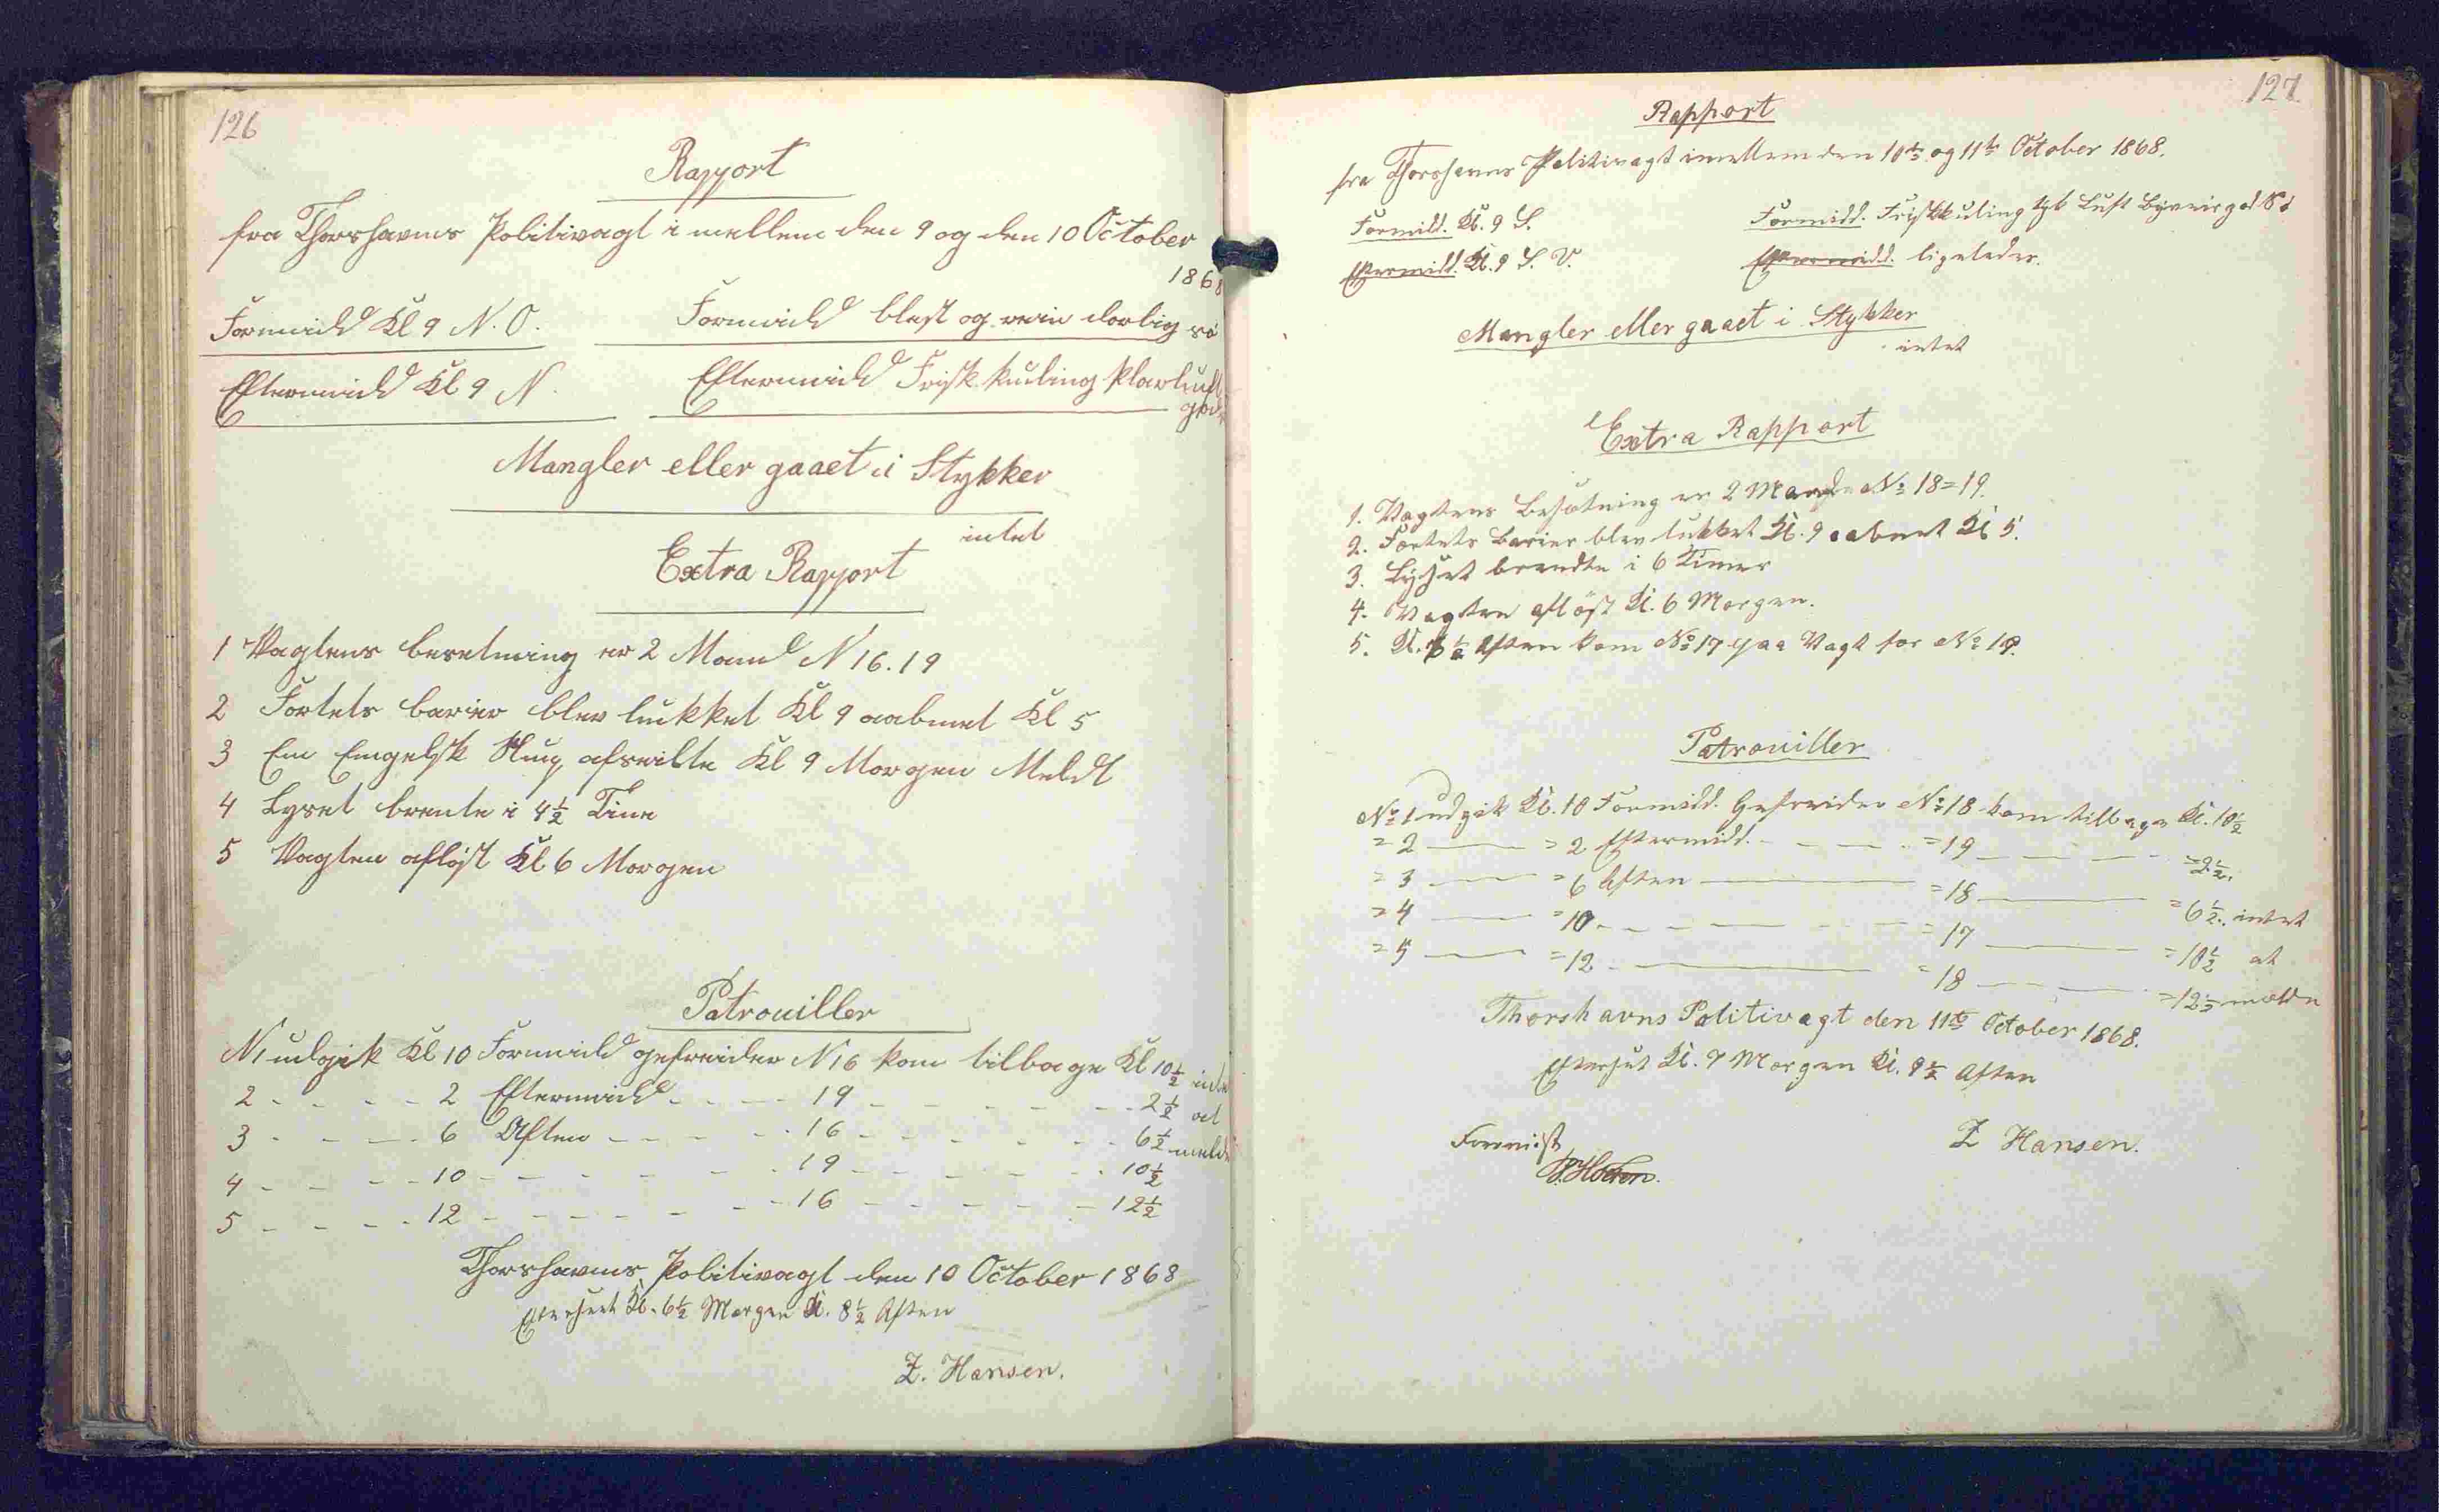 126
Rapport
fra Thorshavns Politivagt i mellem den 9 og den 10 October
1868
Formidd Kl 9 N. O.
Formidd blest og rein dorlig sö
Eftermidd Kl 9 N.
Eftermidd Frisk kuling klarluft
god
Mangler eller gaaet i Stykker
intet
Extra Rapport
1 Vagtens besetning er 2 Mand N 16. 19
2 Fortets barier blev lukket Kl 9 aabnet Kl 5
3 En Engelsk Slup afseilte Kl 9 Morgen Meldt
4 Lyset brente i 4½ Time
5 Vagten aflöst Kl 6 Morgen
Patrouiller
N 1 udgik Kl 10 Formidd gefreider N 16 kom tilbage Kl 10½ intet
2 - - - - 2 Eftermidd - - - - 19 - - - - - - 2½ at
3 - - - - 6 Aften - - - - 16 - - - - - - 6½ melde
4 - - - - 10 - - - - - - 19 - - - - - - 10½
5 - - - - 12 - - - - - - 16 - - - - - - 12½
Thorshavns Politivagt den 10 October 1868
Efterseet Kl. 6½ Morgen Kl. 8½ Aften
Z. Hansen.
127.
Rapport
fra Thorshavns Politivagt imellem den 10de og 11te October 1868.
Formidd. Kl. 9 S.
Formidd. Friskkuling tyk Luft Byveir god Sö
Eftermidd. Kl. 9 S. V.
Eftermidd. ligeledes.
Mangler eller gaaet i Stykker
intet
Extra Rapport
1. Vagtens Besætning er 2 Mand No 18 = 19.
2. Fortets Barier blev lukket Kl. 9 aabnet Kl 5.
3. Lyset brendte i 6 Timer
4. Vagten aflöst Kl. 6 Morgen.
5. Kl. ½ Aften kom No 17 paa Vagt for No 19.
Patrouiller
No 1 udgik Kl. 10 Formidd. Gefreider No 18 kom tilbage Kl. 10½
= 2 —— = 2 Eftermidd. - - - - = 19 - - - - = 2½.
= 3 —— = 6 Aften —— = 18 —— = 6½. intet
= 4 —— = 10 - - - - = 17 —— = 10½ at
= 5 —— = 12 - —— = 18 —— = 12½ melde
Thorshavns Politivagt den 11te October 1868.
Efterset Kl. 7 Morgen Kl. 8½ Aften
Z Hansen.